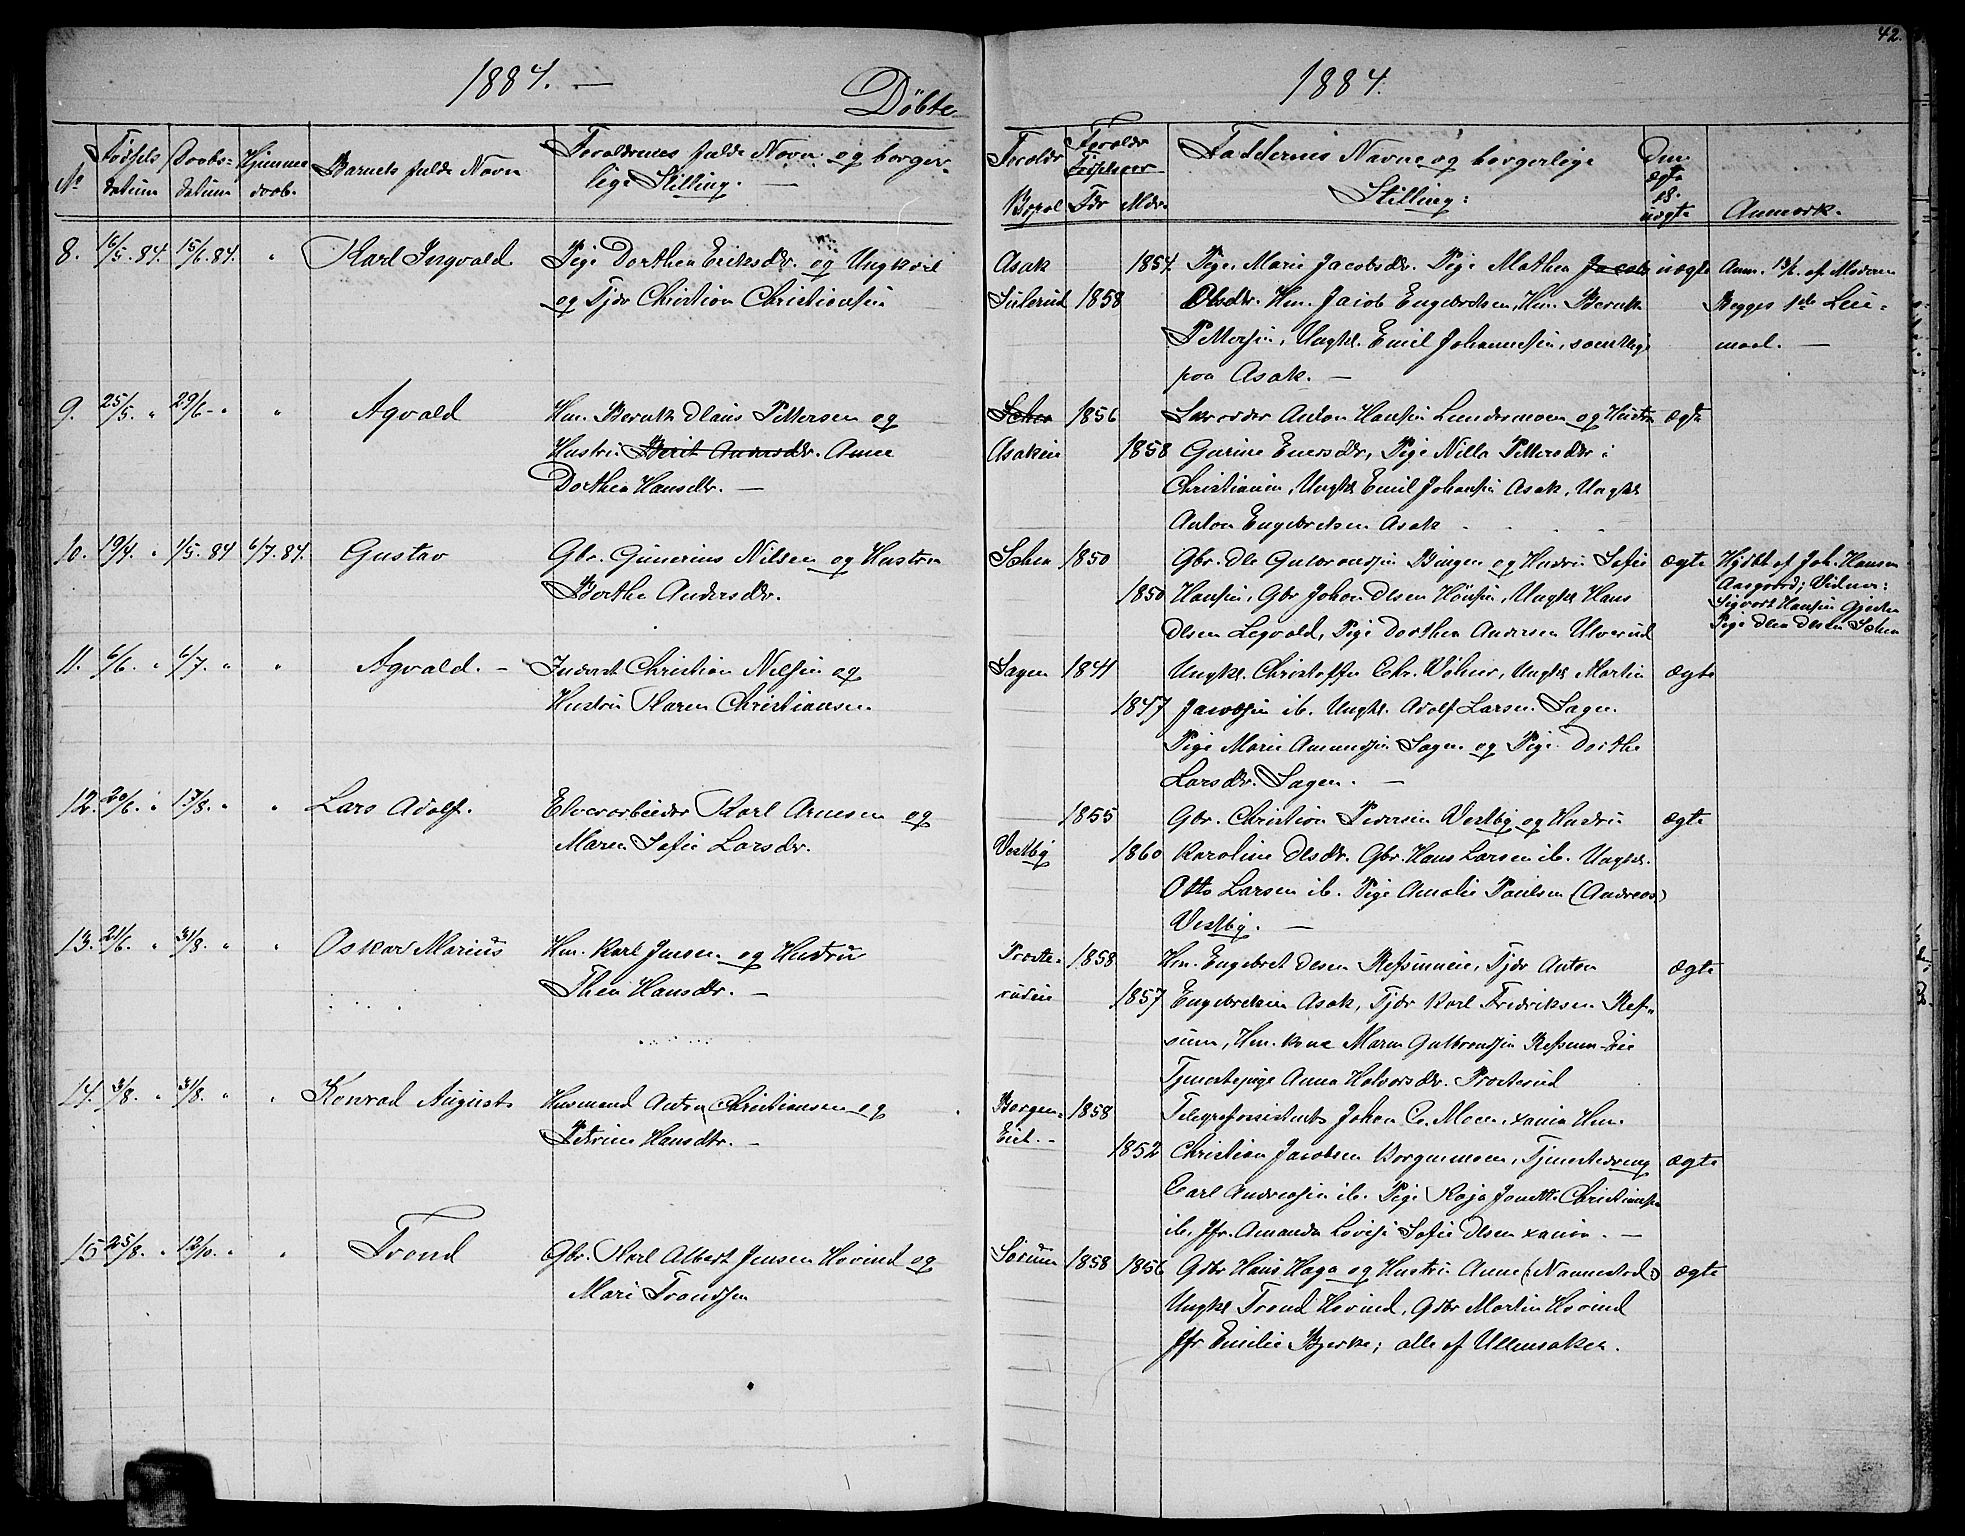 42.
1884. —
Døbte
1884.
No
Fødsels datum
Daabs- datum
Hjemme daab.
Barnets fulde Navn
Forældrenes fulde Navn og borger-
lige Stilling. —
Forældr Bopæl
Forældr Fødselsaar
Fdr Mdr.
Faddernes Navne og borgerlige
Stilling:
Om ægte el. uægte
Anmærk.
8. 16/5. 84. 15/6. 84. " Karl Ingvald Pige Dorthea Eriksdr. og Ungkarl Asak 1854. Pige Marie Jacobsdr. Pige Mathea Jacobs uægte Anm. 13/6. af Moderen
og Tjdr Christian Christiansen 1858 Olsdr. Hm. Jacob Engebretsen, Hm. Bernt Begges 1ste Lei-
Pettersen, Ungkl. Emil Johannesen, samtlige maal. —
paa Asak. —
9. 25/5. " 29/6 - " " Agvald Hm. Bernt Olaus Pettersen og 1856 Anton Hansen Lundermoen og Hustru ægte
Hustru Berit Andersdr. Anne Asakeie 1858 Gurine Enersdr, Pige Nilla Pettersdr i
Dorthea Hansdr. — Christiania, Ungkl Emil Johansen Asak, Ungkl
Anton Engebretsen Asak
10. 19/4. " 1/5. 84 6/7. 84. Gustav Gbr. Gunerius Nilsen og Hustru 1850 Gbr. Ole Gulbrandsen Bingen og Hustru Sofie ægte Hjdbt af Joh. Hansen
Berthe Andersdr. 1850 Hansen, Gbr Johan Olsen Hönsen, Ungkl Hans Aasgaard; Vidner:
Olsen Legvold, Pige Dorthea Andersen Ulverud Sigvart Hansen
Pige Olea Olsen
11. 6/6. " 6/7. " " Agvald. — Inderst Christian Nilsen og Sagen 1844 Ungkl. Christoffer Chr. Vølner, Ungkl Martin ægte
Hustru Karen Christiansen 1847 Jacobsen ib. Ungkl. Adolf Larsen Sagen.
Pige Marie Amundsen Sagen og Pige Dorthe
Larsdr. Sagen. —
12. 20/6. " 17/8. " " Lars Adolf. Elvearbeider Karl Arnesen og 1855 Gbr. Christian Pedersen Vestby og Hustru ægte
Maren Sofie Larsdr. Vestby 1860 Karoline Olsdr. Gbr. Hans Larsen ib. Ungkl.
Otto Larsen ib. Pige Amalie Paulsen (Andreas)
Vestby. —
13. 21/6. " 31/8. " " Oskar Marius Hm. Karl Jensen og Hustru Proste- 1858 Hm. Engebret Olsen Refsumeie, Tjdr Anton ægte
Thea Hansdr. — rudeie 1857 Engebretsen Asak, Tjdr Karl Fredriksen Ref-
sum, Hm. kone Maren Gulbrandsen Refsum-Eie
Tjenestepige Anna Halvorsdr. Prosterud
14. 3/8. " 31/8. " " Konrad August Husmand Anton Christiansen og Borgen- 1858 Telegrafassistent Johan C. Moen, xania Hm.
Petrine Hansdtr. — Eiet. — 1852 Christian Jacobsen Borgenmoen, Tjenestedreng ægte
Carl Andreasen ib. Pige Kaja Janette Christiansen
ib. Jfr. Amanda Lovise Sofie Olsen xania. —
15 25/8. " 12/10. " " Trond Gbr. Karl Albert Jensen Høvind og Sørum 1858 1856 Gdbr Hans Haga og Hustru Anne (Nannestad) ægte
Mari Trondsen Ungkl Trond Høvind, Gdbr Martin Høvind
Jfr Emilie Bjerke; alle af Ullensaker.